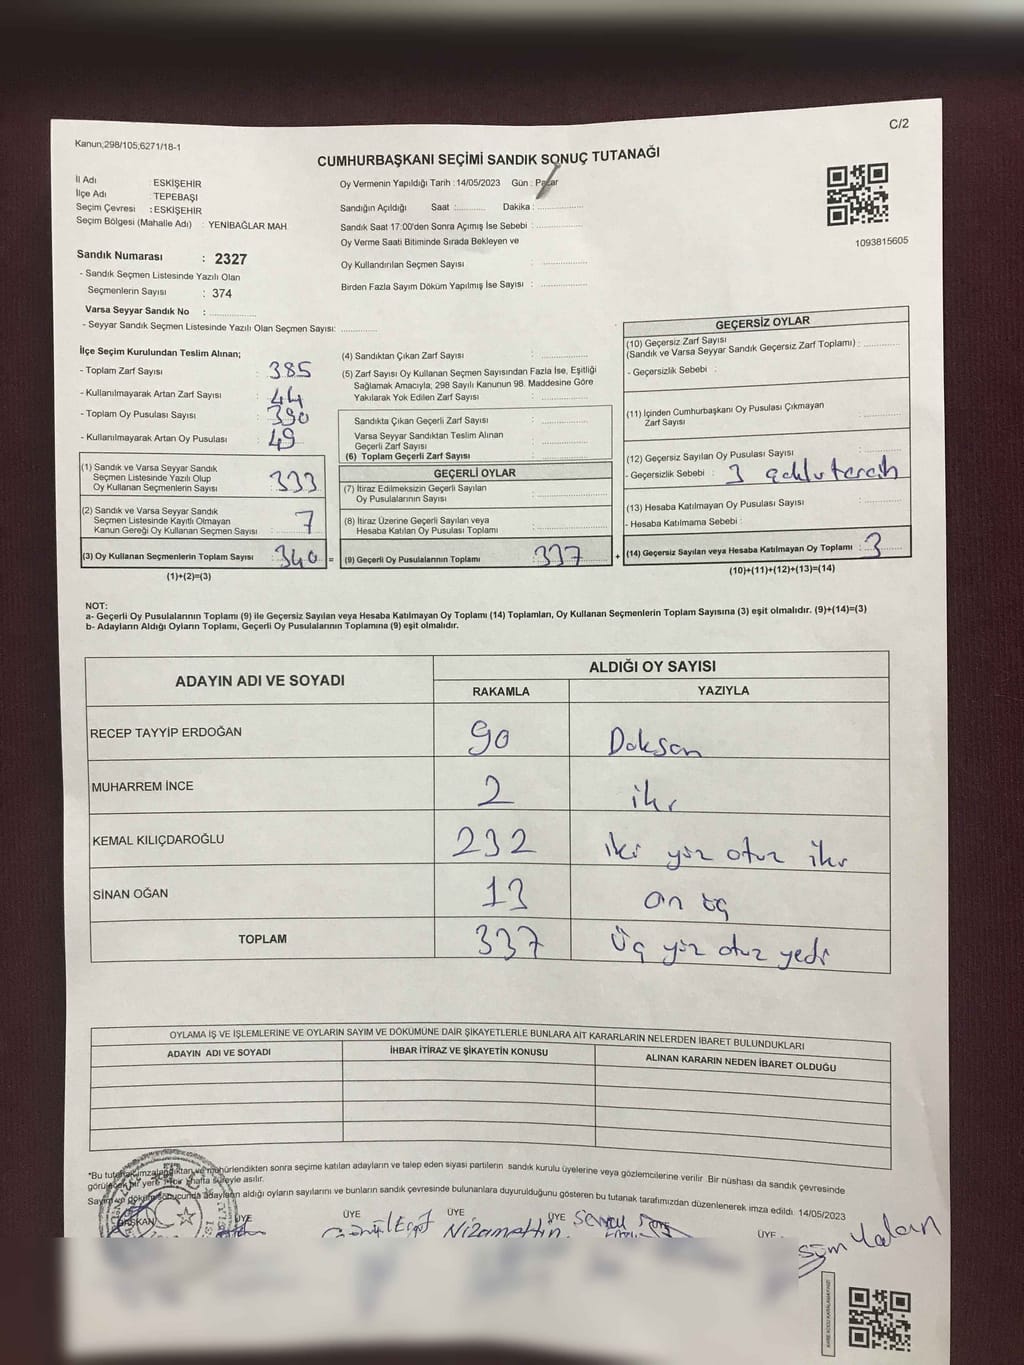 C/2
Kanun;298/105;6271/18-1
CUMHURBAŞKANI SEÇİMİ SANDIK SONUÇ TUTANAĞI
İl Adı : ESKİŞEHİR
İlçe Adı : TEPEBAŞI
Seçim Çevresi : ESKİŞEHİR
Seçim Bölgesi (Mahalle Adı) : YENİBAĞLAR MAH
Sandık Numarası : 2327
- Sandık Seçmen Listesinde Yazılı Olan
Seçmenlerin Sayısı : 374
Varsa Seyyar Sandık No : ..............
- Seyyar Sandık Seçmen Listesinde Yazılı Olan Seçmen Sayısı: ............
Oy Vermenin Yapıldığı Tarih : 14/05/2023 Gün : Pazar
Sandığın Açıldığı Saat :.......... Dakika : ..............
Sandık Saat 17:00'den Sonra Açımış İse Sebebi : ..............
Oy Verme Saati Bitiminde Sırada Bekleyen ve
Oy Kullandırılan Seçmen Sayısı : ..............
Birden Fazla Sayım Döküm Yapılmış İse Sayısı : ..............
1093815605
İlçe Seçim Kurulundan Teslim Alınan;
- Toplam Zarf Sayısı : 385
- Kullanılmayarak Artan Zarf Sayısı : 44
- Toplam Oy Pusulası Sayısı : 390
- Kullanılmayarak Artan Oy Pusulası : 49
(1) Sandık ve Varsa Seyyar Sandık
Seçmen Listesinde Yazılı Olup
Oy Kullanan Seçmenlerin Sayısı : 333
(2) Sandık ve Varsa Seyyar Sandık
Seçmen Listesinde Kayıtlı Olmayan
Kanun Gereği Oy Kullanan Seçmen Sayısı : 7
(3) Oy Kullanan Seçmenlerin Toplam Sayısı : 340 =
(1)+(2)=(3)
(4) Sandıktan Çıkan Zarf Sayısı : ..............
(5) Zarf Sayısı Oy Kullanan Seçmen Sayısından Fazla İse, Eşitliği
Sağlamak Amacıyla; 298 Sayılı Kanunun 98. Maddesine Göre
Yakılarak Yok Edilen Zarf Sayısı : ..............
Sandıkta Çıkan Geçerli Zarf Sayısı : ..............
Varsa Seyyar Sandıktan Teslim Alınan
Geçerli Zarf Sayısı : ..............
(6) Toplam Geçerli Zarf Sayısı : ..............
GEÇERLİ OYLAR
(7) İtiraz Edilmeksizin Geçerli Sayılan
Oy Pusulalarının Sayısı : ..............
(8) İtiraz Üzerine Geçerli Sayılan veya
Hesaba Katılan Oy Pusulası Toplamı : ..............
(9) Geçerli Oy Pusulalarının Toplamı : 337 +
GEÇERSİZ OYLAR
(10) Geçersiz Zarf Sayısı
(Sandık ve Varsa Seyyar Sandık Geçersiz Zarf Toplamı) : ............
- Geçersizlik Sebebi :
(11) İçinden Cumhurbaşkanı Oy Pusulası Çıkmayan
Zarf Sayısı : ............
(12) Geçersiz Sayılan Oy Pusulası Sayısı : ............
- Geçersizlik Sebebi : 3 çoklu tercih
(13) Hesaba Katılmayan Oy Pusulası Sayısı : ............
- Hesaba Katılmama Sebebi :
(14) Geçersiz Sayılan veya Hesaba Katılmayan Oy Toplamı : 3
(10)+(11)+(12)+(13)=(14)
NOT:
a- Geçerli Oy Pusulalarının Toplamı (9) ile Geçersiz Sayılan veya Hesaba Katılmayan Oy Toplamı (14) Toplamları, Oy Kullanan Seçmenlerin Toplam Sayısına (3) eşit olmalıdır. (9)+(14)=(3)
b- Adayların Aldığı Oyların Toplamı, Geçerli Oy Pusulalarının Toplamına (9) eşit olmalıdır.
ADAYIN ADI VE SOYADI ALDIĞI OY SAYISI
RAKAMLA YAZIYLA
RECEP TAYYİP ERDOĞAN 90 Doksan
MUHARREM İNCE 2 iki
KEMAL KILIÇDAROĞLU 232 iki yüz otuz iki
SİNAN OĞAN 13 on üç
TOPLAM 337 Üç yüz otuz yedi
OYLAMA İŞ VE İŞLEMLERİNE VE OYLARIN SAYIM VE DÖKÜMÜNE DAİR ŞİKAYETLERLE BUNLARA AİT KARARLARIN NELERDEN İBARET BULUNDUKLARI
ADAYIN ADI VE SOYADI İHBAR İTİRAZ VE ŞİKAYETİN KONUSU ALINAN KARARIN NEDEN İBARET OLDUĞU
*Bu tutanak imzalandıktan ve mühürlendikten sonra seçime katılan adayların ve talep eden siyasi partilerin sandık kurulu üyelerine veya gözlemcilerine verilir. Bir nüshası da sandık çevresinde
görülecek bir yere 1 bir hafta süreyle asılır.
Sayım ve döküm sonucunda adayların aldığı oyların sayılarını ve bunların sandık çevresinde bulunanlara duyurulduğunu gösteren bu tutanak tarafımızdan düzenlenerek imza edildi. 14/05/2023
BAŞKAN ÜYE ÜYE ÜYE ÜYE ÜYE
Nizamettin